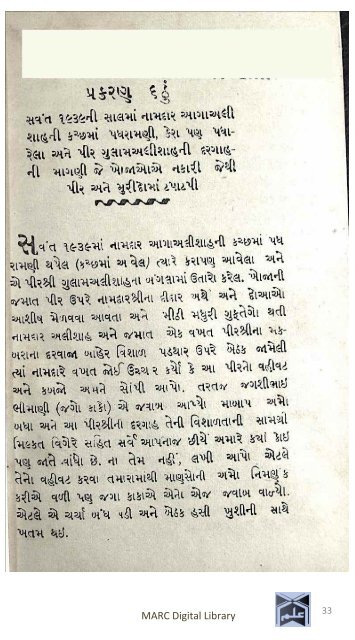 પ્રકરણ ૬ ઠ્ઠું
સવંત ૧૯૩૯ની સાલમાં નામદાર આગાઅલી
શાહની કચ્છમાં પધરામણી, કેરા પણ પધા-
રેલા અને પીર ગુલામઅલીશાહની દરગાહ-
ની માગણી જે ખોજાઓએ નકારી જેથી
પીર અને મુરીદોમાં ટપાટપી
સવંત ૧૯૩૯માં નામદાર આગાઅલીશાહની કચ્છમાં પધ
રામણી થયેલ (કચ્છમાં આવેલ) ત્યારે કેરાપણ આવેલા અને
એ પીરશ્રી ગુલામઅલીશાહના બંગલામાં ઉતારો કરેલ. ખોજાની
જમાત પીર ઉપરે નામદારશ્રીના દીદાર અર્થે અને દોઆઓ
આશીષ મેળવવા આવતા અને મીઠી મધુરી ગુફ્તેગો થતી
નામદાર અલીશાહ અને જમાત એક વખત પીરશ્રીના મક-
બરાના દરવાજા બાહેર વિશાળ પડથાર ઉપરે બેઠક જામેલી
ત્યાં નામદારે વખત જોઈ ઉચ્ચાર કર્યો કે આ પીરનો વહીવટ
અને કબજો અમને સોંપી આપો. તરતજ જગશીભાઈ
ભીમાણી (જગો કાકા) એ જવાબ આપ્યો માબાપ અમો
બધા અને આ પીરશ્રીના દરગાહ તેની વિશાળતાની સામગ્રી
મિલ્કત વિગેરે સહિત સર્વે આપનાજ છીયે અમારે કયાં કાંઇ
પણ જાતે વાંધો છે. ના તેમ નહીં, લખી આપો એટલે
તેનો વહીવટ કરવા તમારામાંથી માણસોની અમો નિમણુક
કરીએ વળી પણ જગા કાકાએ એનો એજ જવાબ વાળ્યો.
એટલે એ ચર્ચા બંધ પડી અને બેઠક હસી ખુશીની સાથે
ખતમ થઇ.
MARC Digital Library
علم
33